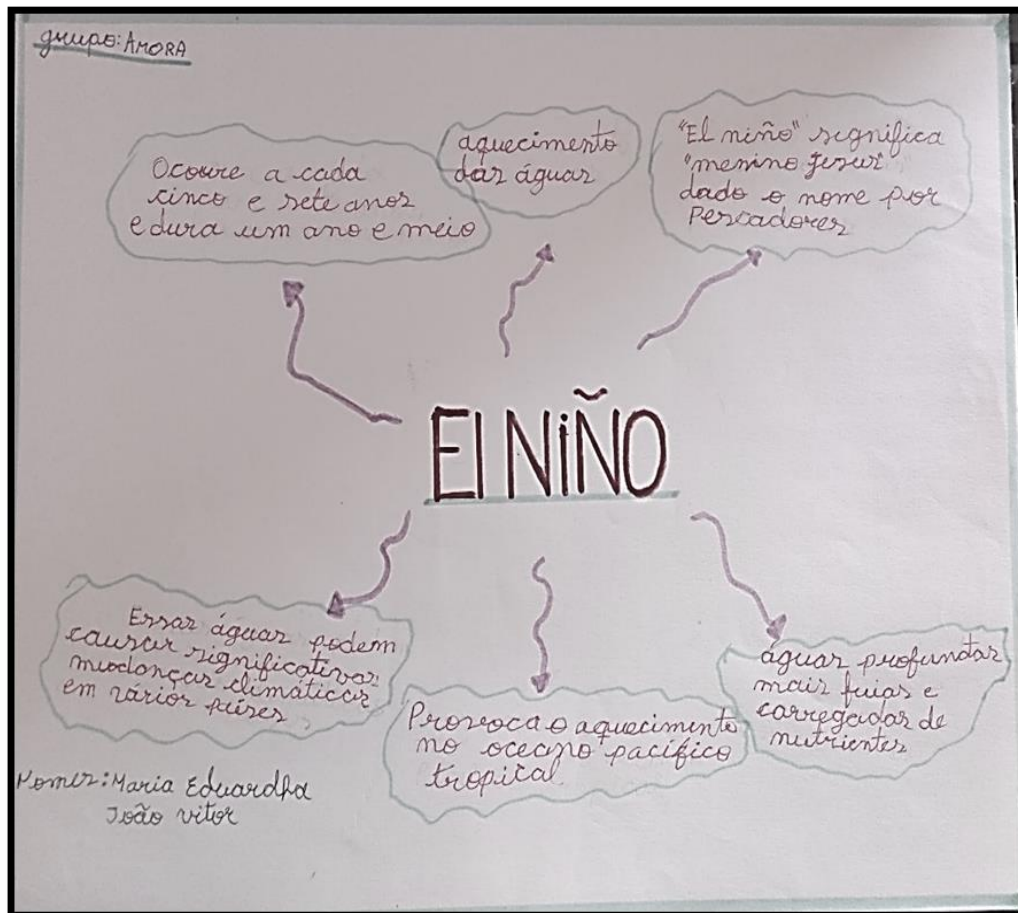 grupo: AMORA
Ocorre a cada
cinco e sete anos
e dura um ano e meio
aquecimento
das águas
"El niño" significa
"menino Jesus"
dado o nome por
Pescadores
El NiÑO
Essas águas podem
causar significativas
mudanças climáticas
em vários países
Provoca o aquecimento
no oceano pacífico
tropical
águas profundas
mais frias e
carregadas de
nutrientes
Nomes: Maria Eduardha
João vitor